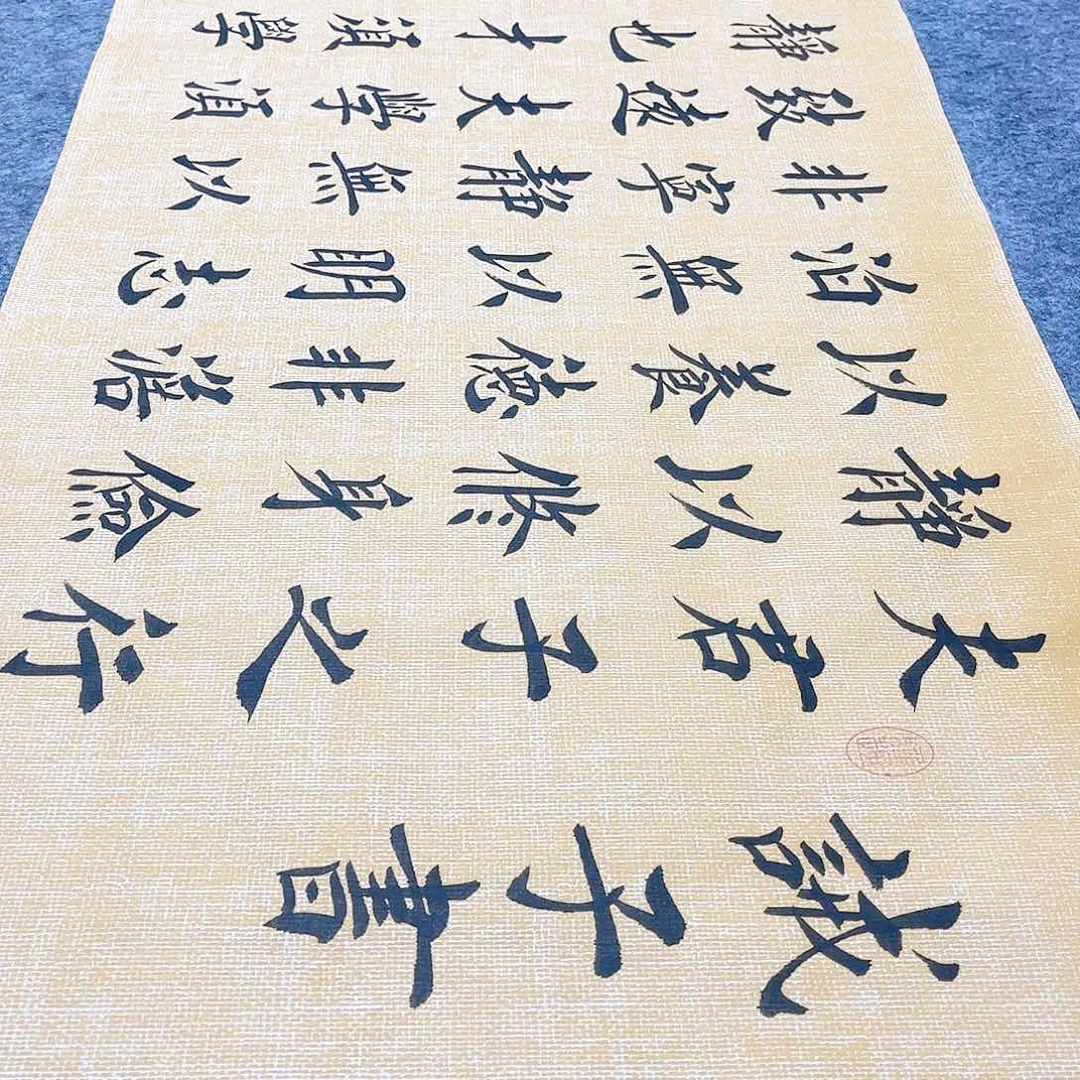 誡子書
夫君子之行
靜以修身儉
以養德非澹
泊無以明志
非寧靜無以
致遠夫學須
靜也才須學